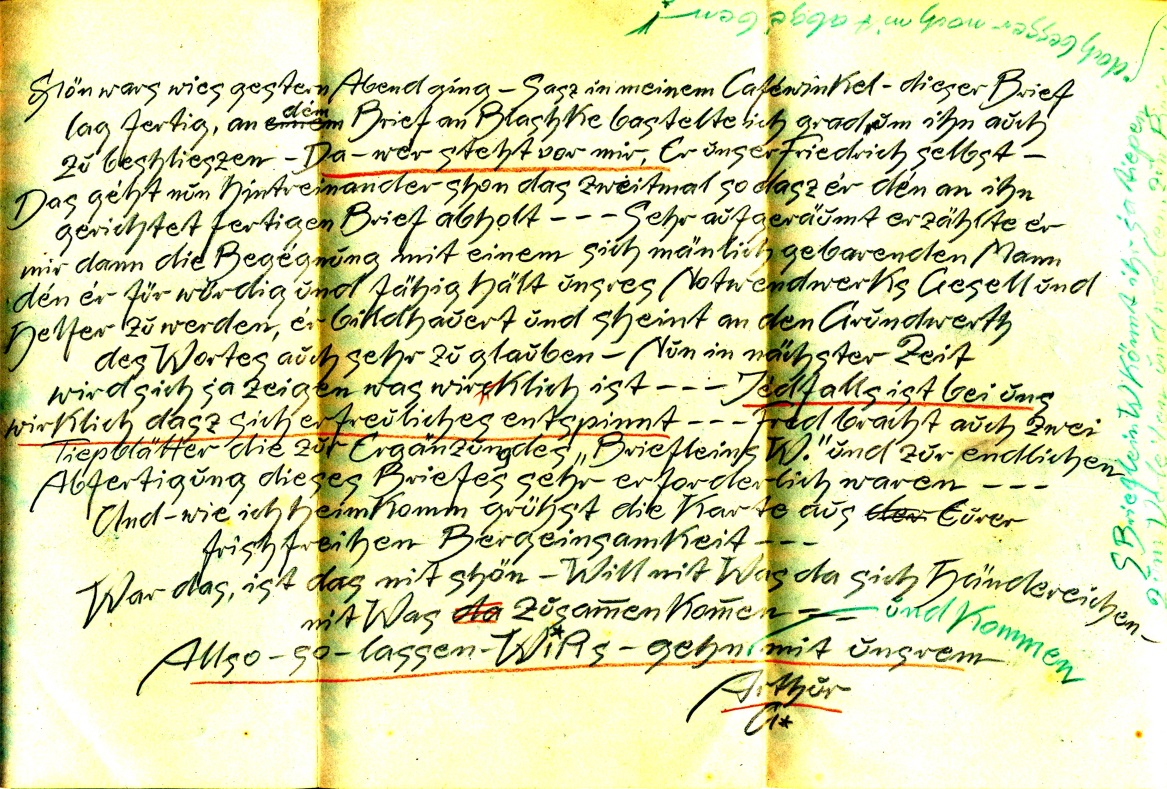 Shön wars wies gestern Abend ging – Sasz in meinem Cafewinkel – dieser Brief
lag fertig, an einem dém Brief an Blashke bastelte ich grad, um ihn auch
zu beshlieszen – Da – wer steht vor mir, Er unser Friedrich selbst –
Das geht nun hintreinander shon das zweitmal so dasz ér dén an ihn
gerichtet fertigen Brief abholt – – – Sehr aufgeräumt erzählte ér
mir dann die Begégnung mit einem sich mänlich gebarenden Mann
dén ér för würdig und fähig hält unsres Notwendwerks Gesell und
Helfer zu werden, ér billdhauert und sheint an den Grundwerth
des Wortes auch sehr zu glauben – Nun in nächster Zeit
wird sich ja zeigen was wirklich ist – – – Jedfalls ist bei uns
wirklich dasz sich erfreuliches entspinnt – – – Fred bracht auch zwei
Tiepblätter die zur Ergänzung des „Briefleins W." und zur endlichen
Abfertigung dieses Briefes sehr erforderlich waren – – –
Und – wie ich heimkomm grühst die Karte aus der Eurer
frishfreihen Bergeinsamkeit – – –
War das, ist das nit shön – Will nit Was da sich Händereichen –
nit Was da zusam̅en kom̅en – und kommen
Allso – so – lassen – WiRs – gehn mit unsrem
Arthur
A*
doch besser noch ni't abgeben!
S Brieflein W könnt ihr ja tiepen